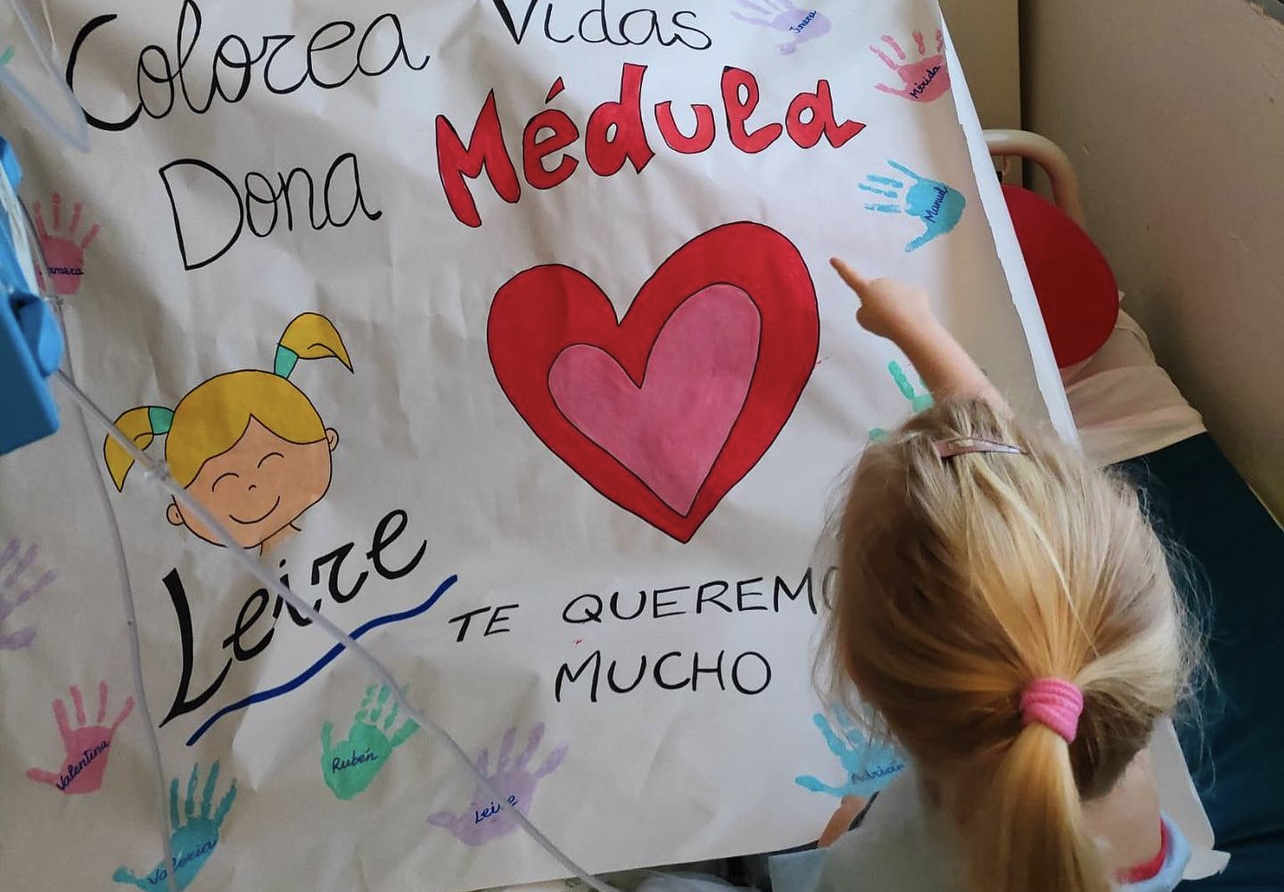 Colorea Vidas
Dona Médula
Leire
TE QUEREMO
MUCHO
Jimena
Mérida
Manuel
Valentina
Rubén
Leire
Adrián
Valeria